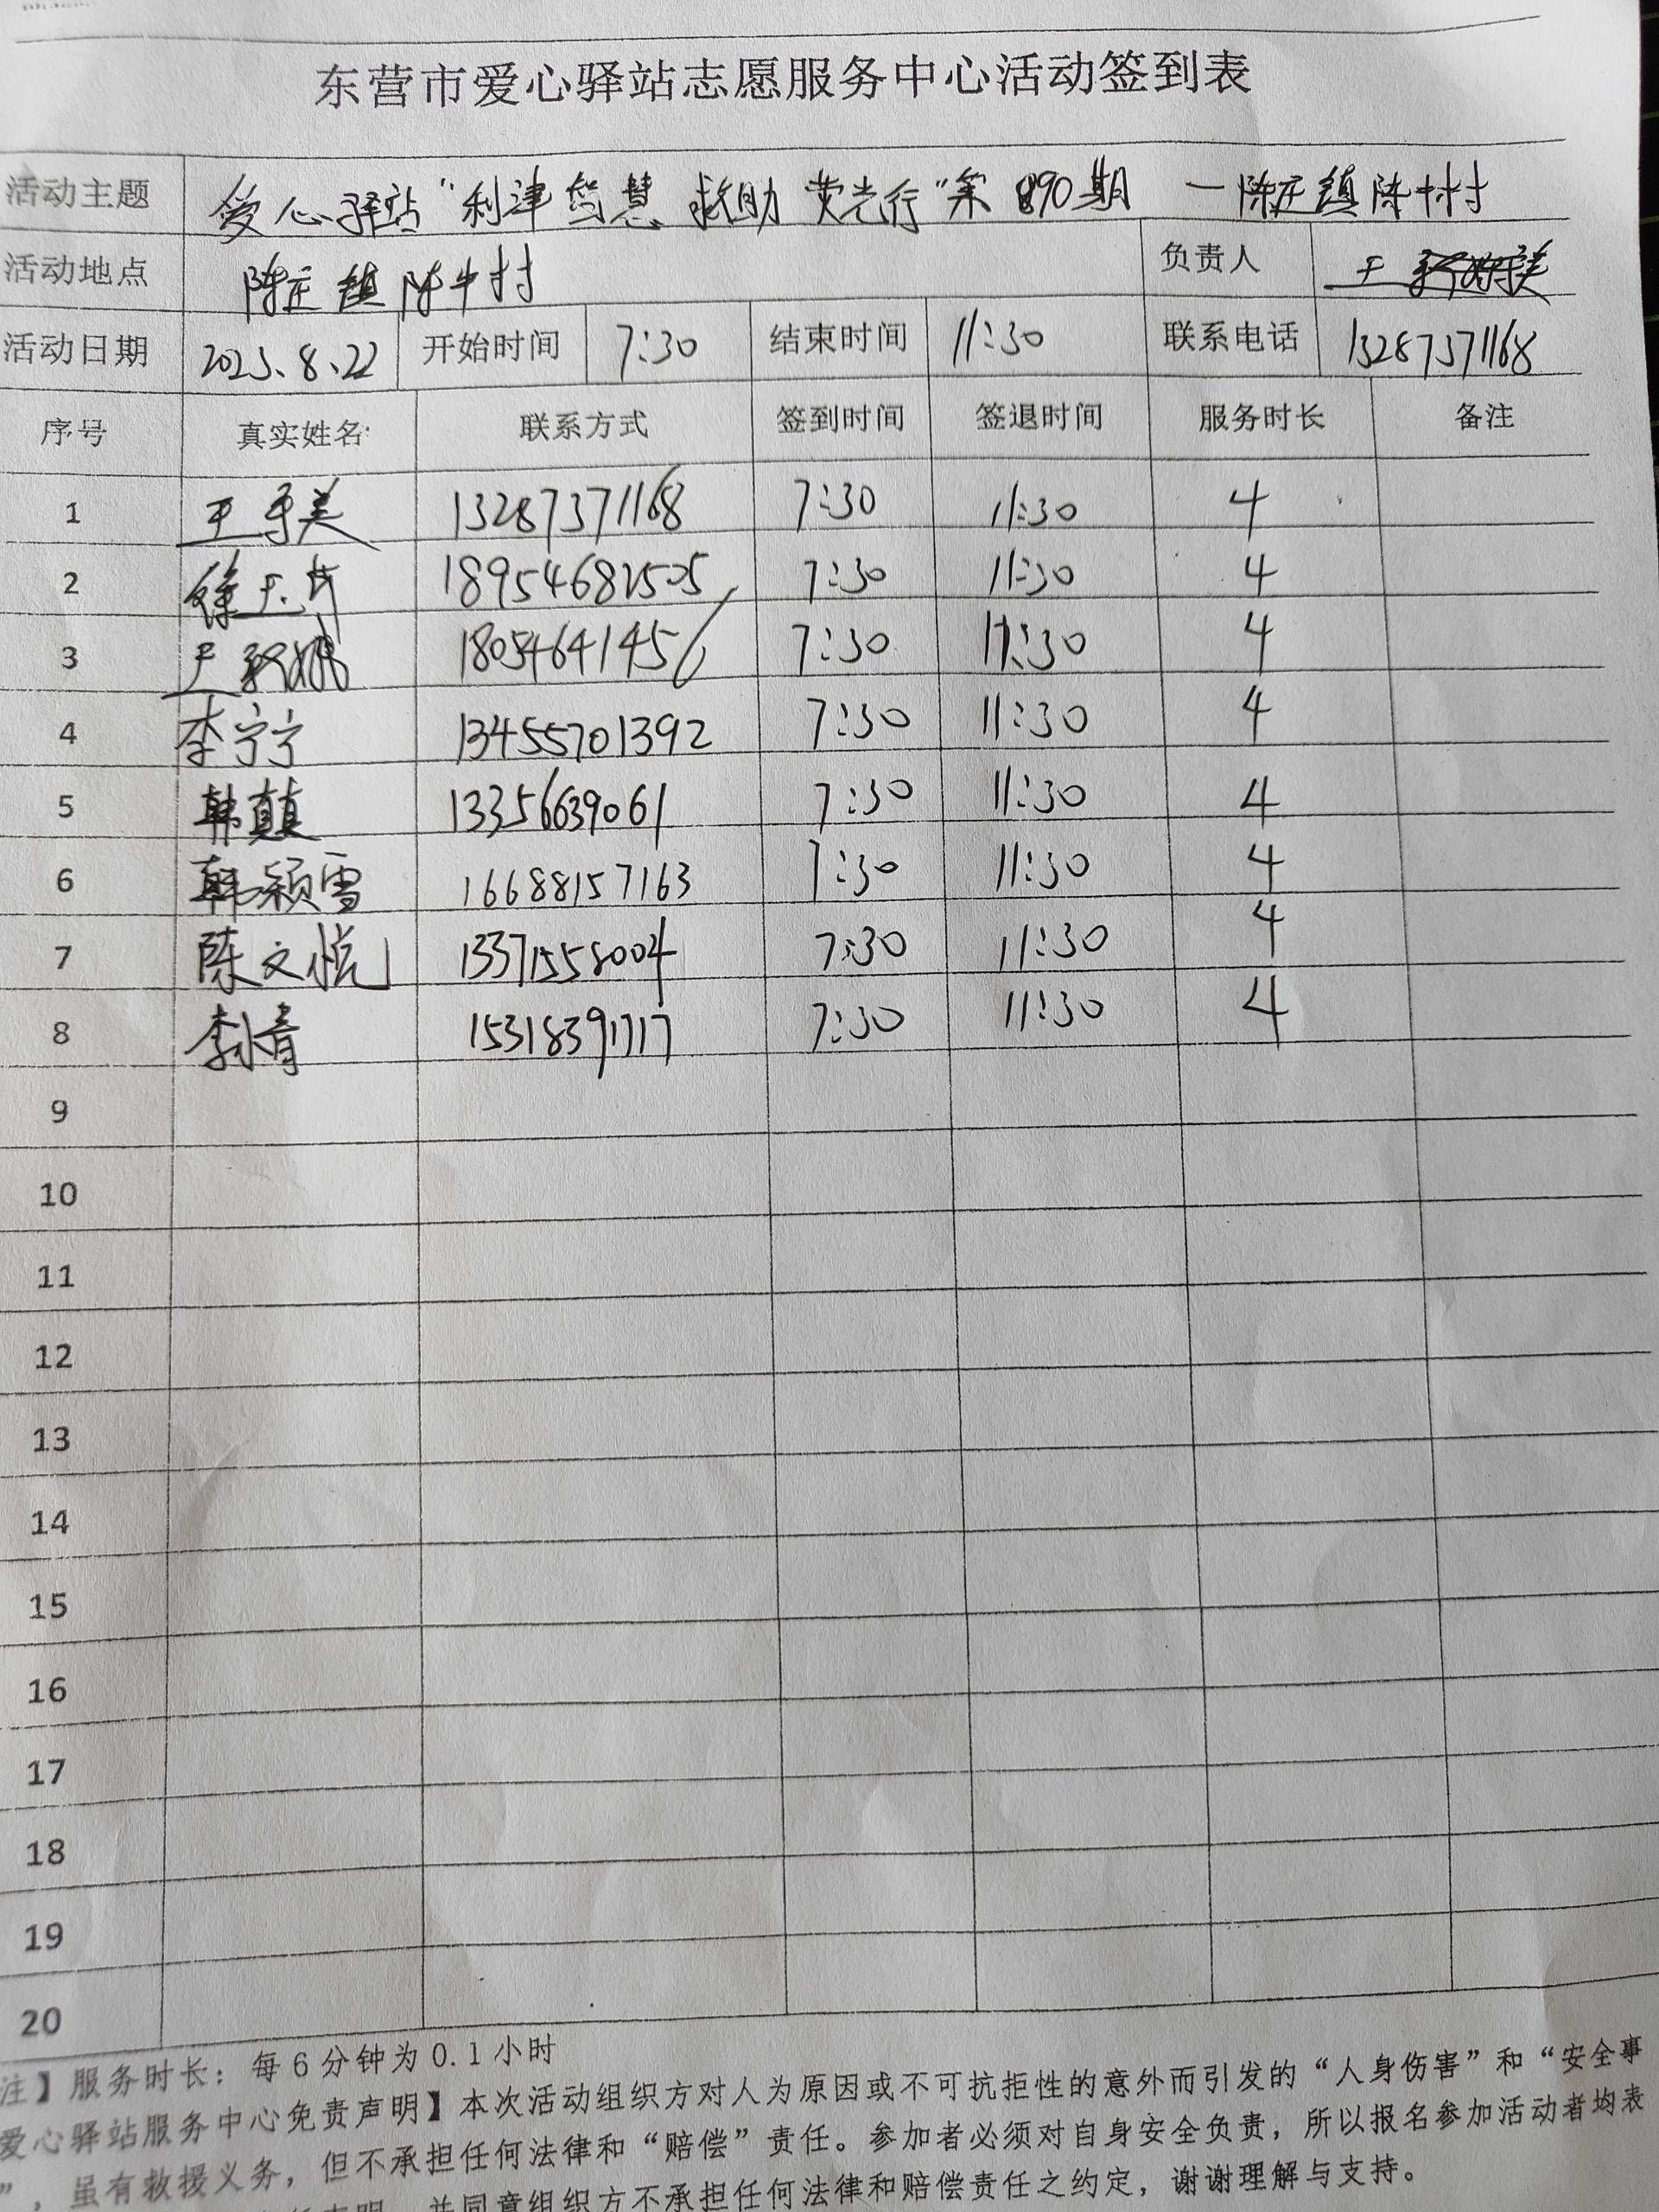 东营市爱心驿站志愿服务中心活动签到表
活动主题 爱心驿站“利津智慧救助荧光行”第890期 一陈庄镇陈中村
活动地点 陈庄镇陈中村 负责人 王
活动日期 2025.8.22 开始时间 7:30 结束时间 11:30 联系电话 13287371168
序号 真实姓名 联系方式 签到时间 签退时间 服务时长 备注
1 王寻美 13287371168 7:30 11:30 4
2 徐 18954682505 7:30 11:30 4
3 18054641456 7:30 11:30 4
4 李宁宁 13455701392 7:30 11:30 4
5 韩真真 13356639061 7:30 11:30 4
6 韩颖雪 16688157163 7:30 11:30 4
7 陈文悦 13371558004 7:30 11:30 4
8 李小青 15318391717 7:30 11:30 4
9
10
11
12
13
14
15
16
17
18
19
20
注】服务时长：每6分钟为0.1小时
爱心驿站服务中心免责声明】本次活动组织方对人为原因或不可抗拒性的意外而引发的“人身伤害”和“安全事
”，虽有救援义务，但不承担任何法律和“赔偿”责任。参加者必须对自身安全负责，所以报名参加活动者均表
声明，并同意组织方不承担任何法律和赔偿责任之约定，谢谢理解与支持。